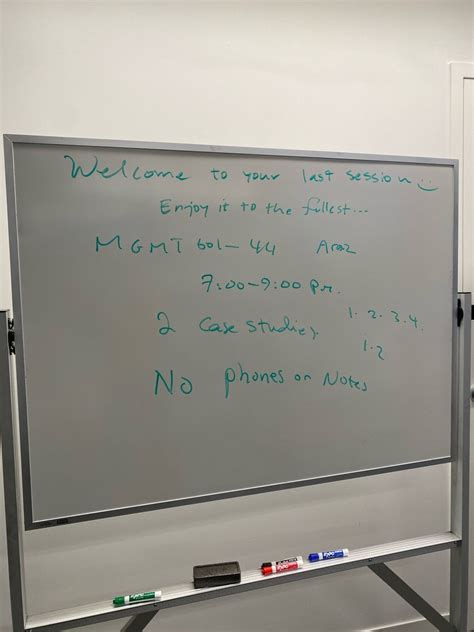 Welcome to your last session
Enjoy it to the fullest...
MGMT 601-44
7:00-9:00 P.M.
2 Case Studies 1. 2. 3. 4.
1.2
No phones or Notes
EXPO
EXPO
EXPO